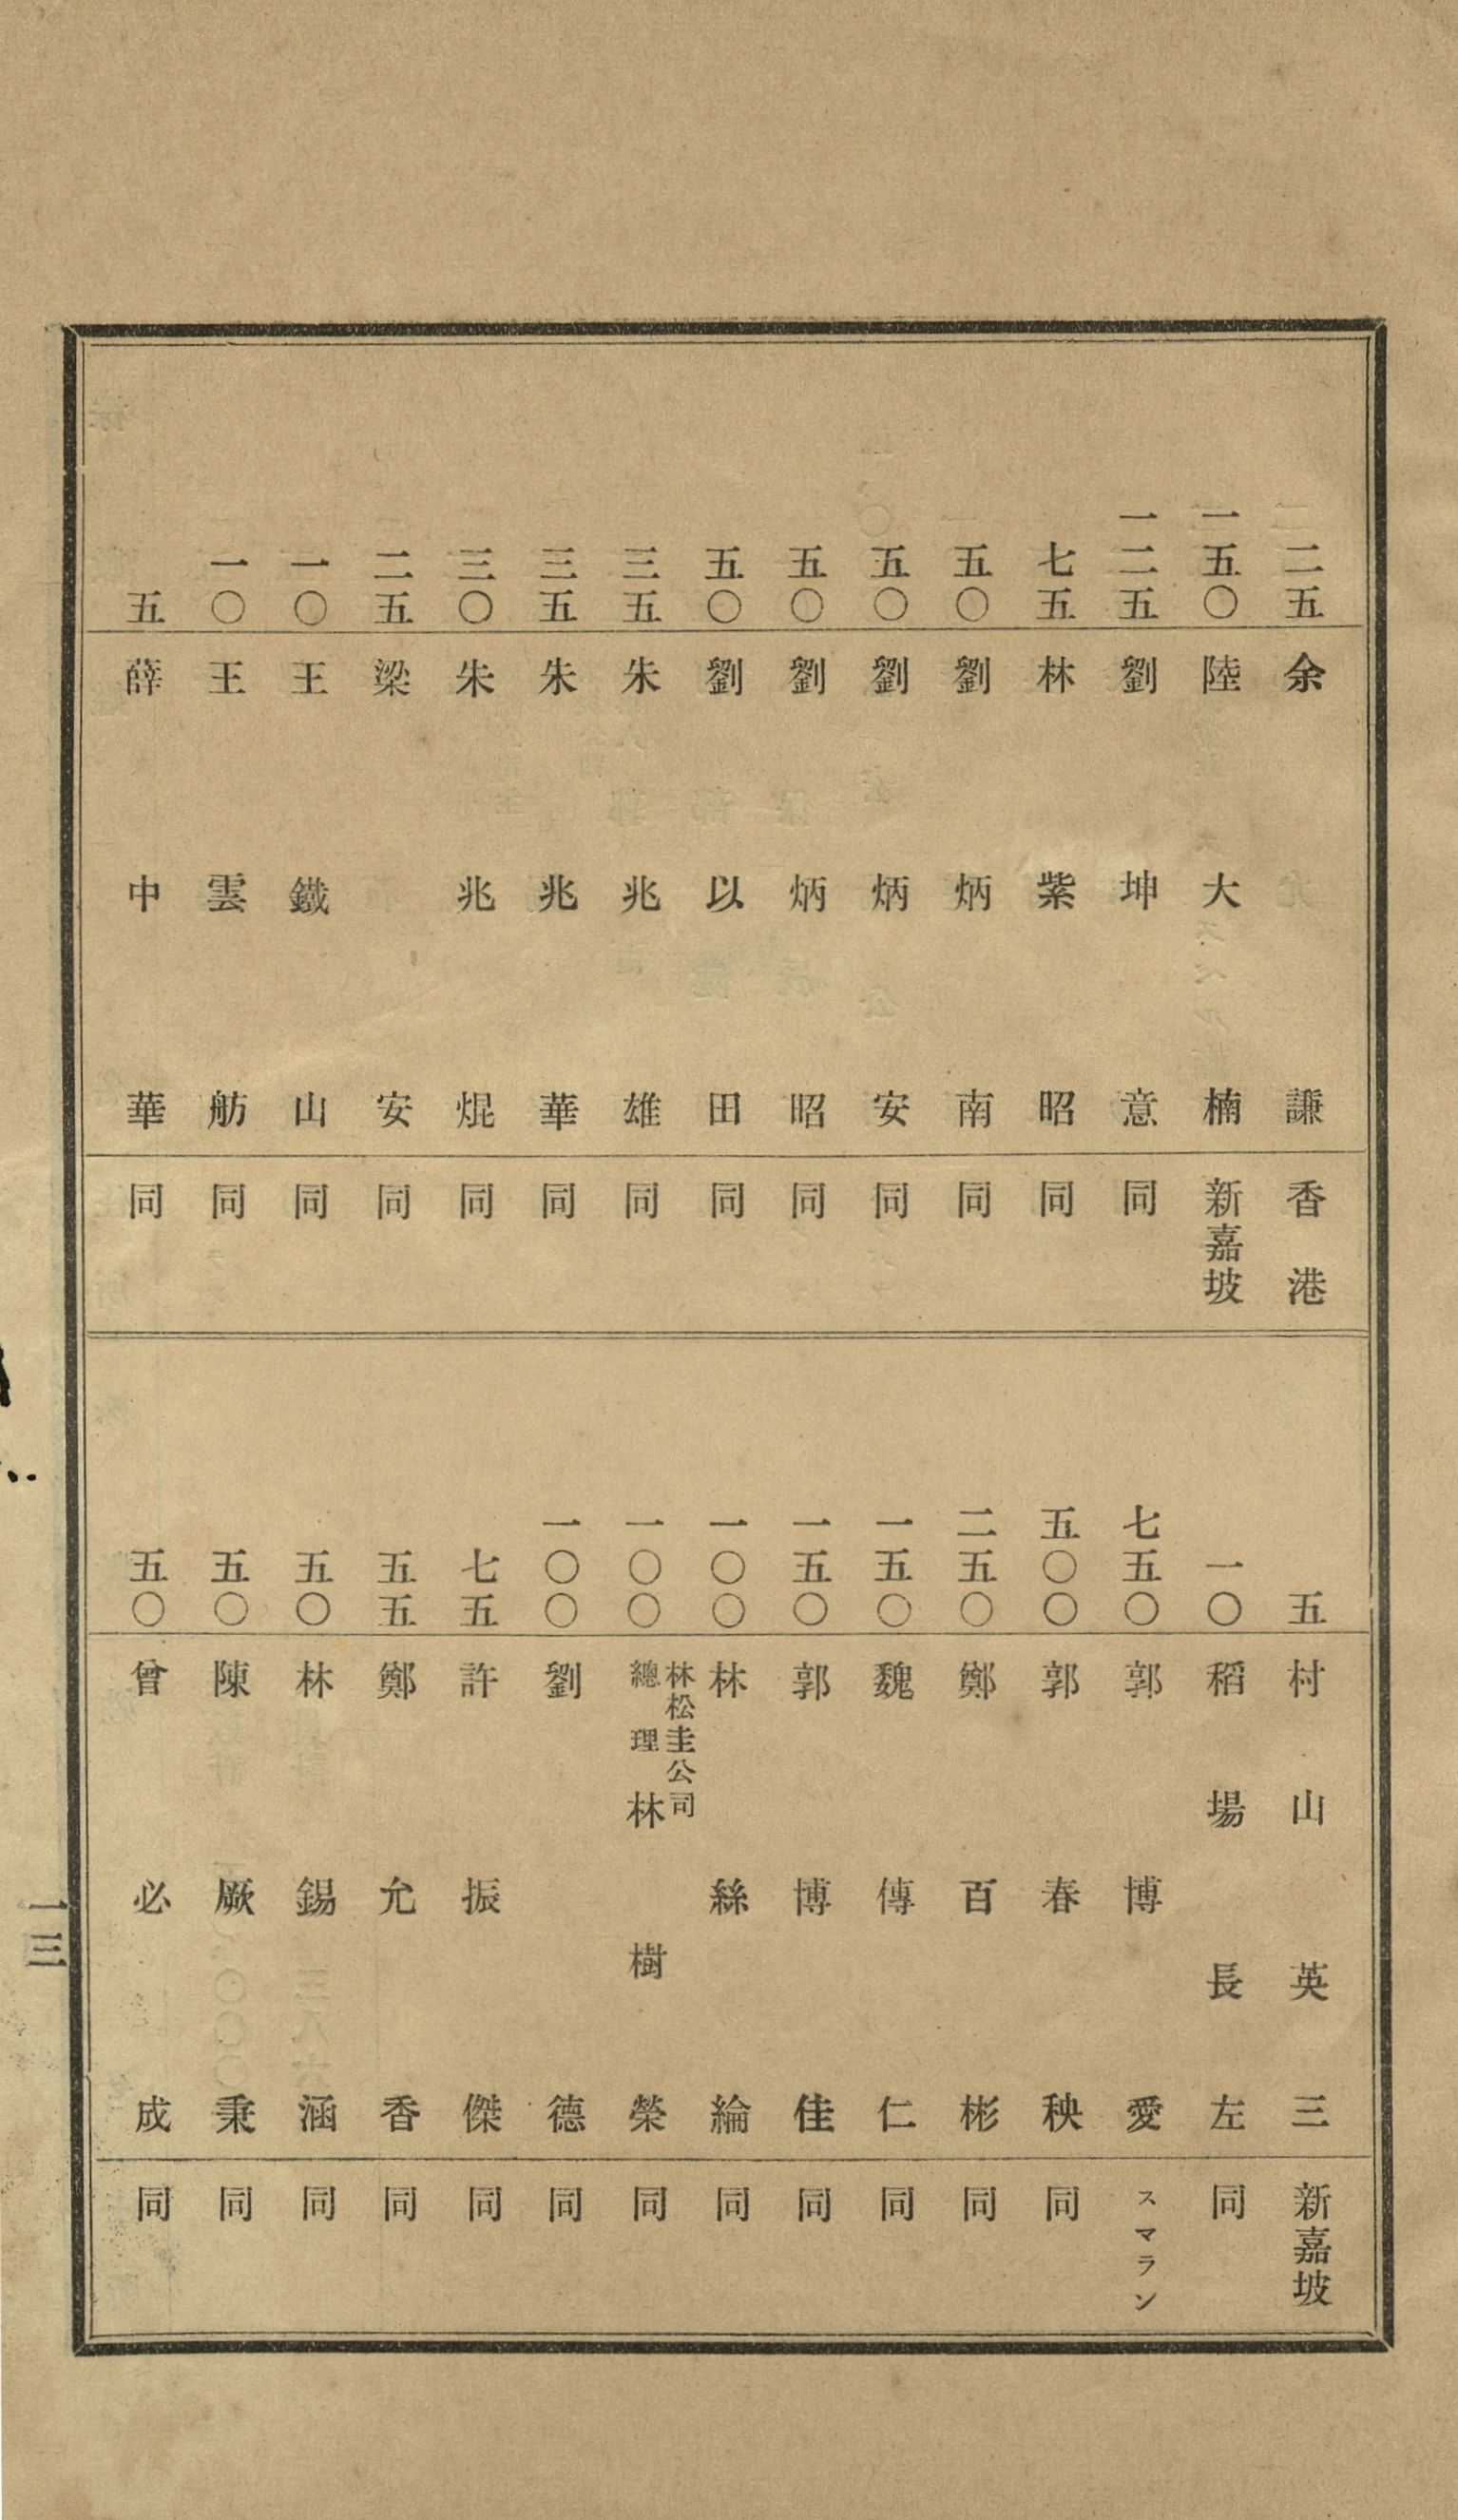 二五 余謙 香港
一五〇 陸大楠 新嘉坡
一二五 劉坤意 同
七五 林紫昭 同
五〇 劉炳南 同
五〇 劉炳安 同
五〇 劉炳昭 同
五〇 劉以田 同
三五 朱兆雄 同
三五 朱兆華 同
三〇 朱兆焜 同
二五 梁安 同
一〇 王鐵山 同
一〇 王雲舫 同
五 薛中華 同
五 村山英三 新嘉坡
一〇 稻場長左 同
七五〇 郭博愛 スマラン
五〇〇 郭春秧 同
二五〇 鄭百彬 同
一五〇 魏傳仁 同
一五〇 郭博佳 同
一〇〇 林絲綸 同
一〇〇 林松圭公司總理 林樹榮 同
一〇〇 劉德 同
七五 許振傑 同
五五 鄭允香 同
五〇 林錫涵 同
五〇 陳厥秉 同
五〇 曾必成 同
一三